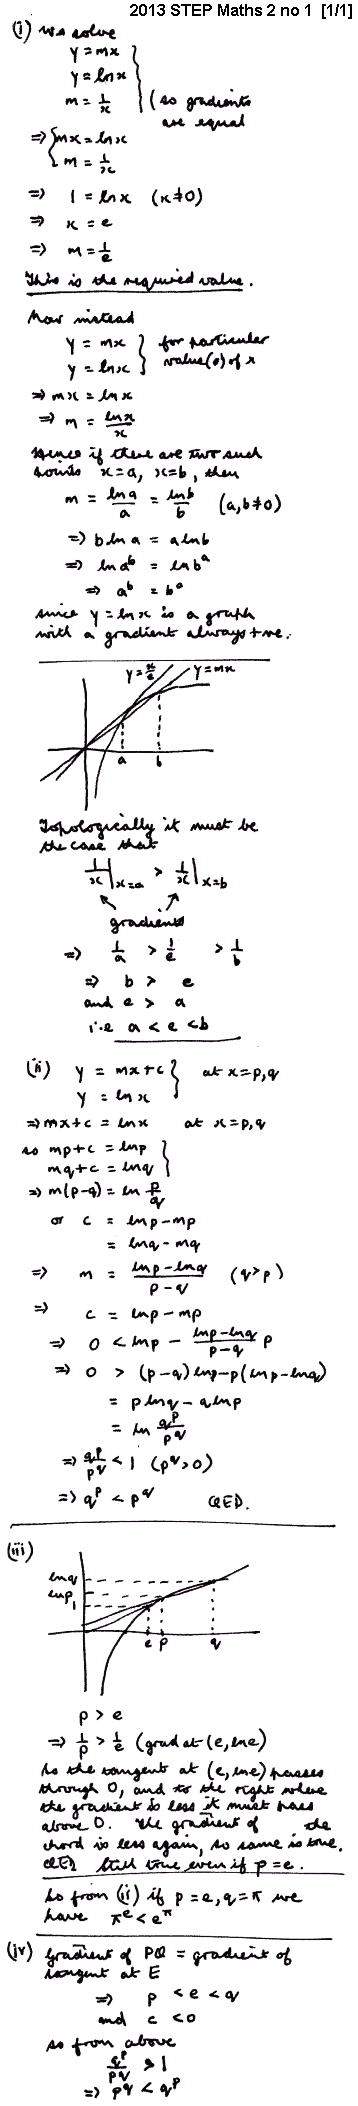 2013 STEP Maths 2 no 1 [1/1]
(i) We solve
y = mx
y = lnx
m = 1/x (so gradients
are equal
⇒ { mx = lnx
m = 1/x
⇒ 1 = lnx (x≠0)
⇒ x = e
⇒ m = 1/e
This is the required value.
Now instead
y = mx } for particular
y = lnx } value(s) of x
⇒ mx = lnx
⇒ m = lnx/x
Hence if there are two such
points x=a, x=b, then
m = lna/a = lnb/b (a,b≠0)
⇒ b ln a = a ln b
⇒ ln a^b = ln b^a
⇒ a^b = b^a
since y = lnx is a graph
with a gradient always +ve.
y=x/e y=mx
a b
Topologically it must be
the case that
1/x|x=a > 1/x|x=b
gradients
⇒ 1/a > 1/e > 1/b
⇒ b > e
and e > a
i.e a < e < b
(ii) y = mx+c } at x=p,q
y = lnx
⇒ mx+c = lnx at x=p,q
so mp+c = lnp
mq+c = lnq
⇒ m(p-q) = ln p/q
or c = lnp-mp
= lnq-mq
⇒ m = lnp-lnq/p-q (q>p)
⇒ c = lnp-mp
⇒ 0 < lnp - lnp-lnq/p-q p
⇒ 0 > (p-q)lnp-p(lnp-lnq)
= p lnq - q lnp
= ln q^p/p^q
⇒ q^p/p^q < 1 (p^q>0)
⇒ q^p < p^q QED.
(iii)
lnq
lnp
1
e p q
p > e
⇒ 1/p > 1/e (grad at (e, lne)
So the tangent at (e, lne) passes
through O, and to the right where
the gradient is less it must pass
above O. The gradient of the
chord is less again, so same is true.
QED Still true even if p = e.
So from (ii) if p = e, q = π we
have π^e < e^π
(iv) gradient of PQ = gradient of
tangent at E
⇒ p < e < q
and c < 0
so from above
q^p/p^q > 1
⇒ p^q < q^p